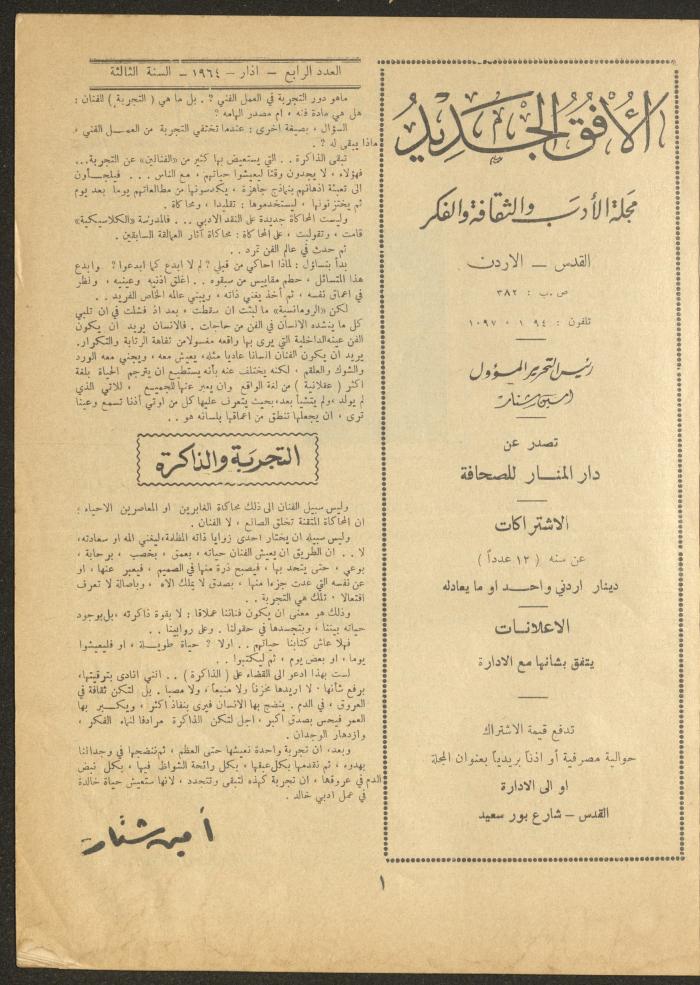 الأفق الجديد
مجلة الأدب والثقافة والفكر
القدس – الاردن
ص.ب : ٣٨٢
تلفون : ٩٤ ١٠ ١٠٩٧
رئيس التحرير المسؤول
امين شنار
تصدر عن
دار المنار للصحافة
الاشتراكات
عن سنه ( ١٢ عدداً )
دينار اردني واحد او ما يعادله
الاعلانات
يتفق بشانها مع الادارة
تدفع قيمة الاشتراك
حوالية مصرفية أو اذناً بريدياً بعنوان المجلة
او الى الادارة
القدس – شارع بور سعيد
العدد الرابع – اذار – ١٩٦٤ – السنة الثالثة
ماهو دور التجربة في العمل الفني ؟ . بل ما هي ( التجربة ) للفنان :
هل هي مادة فنه ، ام مصدر الهامه ؟
السؤال ، بصيغة اخرى : عندما تختفي التجربة من العمل الفني ،
ماذا يبقى له ؟ .
تبقى الذاكرة . . التي يستعيض بها كثير من «الفنانين» عن التجربة...
فهؤلاء ، لا يجدون وقتاً ليعيشوا حياتهم ، مع الناس . . . فيلجـأون
الى تعبئة اذهانهم بنماذج جاهزة ، يكدسونها من مطالعاتهم يوماً بعد يوم
ثم يختزنونها ، ليستخدموها : تقليدا ، ومحاكاة .
وليست المحاكاة جديدة على النقد الادبي ... فالمدرسة «الكلاسيكية»
قامت ، وتقولبت ، على المحاكاة : محاكاة آثار العمالقة السابقين .
ثم حدث في عالم الفن تمرد ..
بدأ بتساؤل : لماذا احاكي من قبلي ؟ لم لا ابدع كما ابدعوا ؟ وابدع
هذا المتسائل ، حطم مقاييس من سبقوه .. اغلق اذنيه وعينيه ، ونظر
في اعماق نفسه ، ثم أخذ يغني ذاته ، ويبني عالمه الخاص الفريد ..
لكن «الرومانسية» ما لبثت ان سقطت ، بعد اذ فشلت في ان تلبي
كل ما ينشده الانسان في الفن من حاجات . فالانسان يريد ان يكون
الفن عينه الداخلية التي يرى بها واقعه مغسولا من تفاهة الرتابة والتكرار.
يريد ان يكون الفنان انسانا عاديا مثله، يعيش معه ، ويجني معه الورد
والشوك والعلقم ، لكنه يختلف عنه بأنه يستطيع ان يترجم الحياة بلغة
اكثر ( عقلانية ) من لغة الواقع وان يعبر عنها للجميع ، للاتي الذي
لم يولد ،ولم يتشيأ بعد،بحيث يتعرف عليها كل من اوتي أذنا تسمع وعينا
ترى ، ان يجعلها تنطق من اعماقها بلسانه هو ..
التجربة والذاكرة
وليس سبيل الفنان الى ذلك محاكاة الغابرين او المعاصرين الاحياء ؛
ان المحاكاة المتقنة تخلق الصانع ، لا الفنان .
وليس سبيله ان يختار احدى زوايا ذاته المظلمة،ليغني المه او سعادته،
لا . . ان الطريق ان يعيش الفنان حياته ، بعمق ، بخصب ، برحابة ،
بوعي ، حتى يتحد بها ، فيصبح ذرة منها في الصميم ، فيعبر عنها ، او
عن نفسه التي عدت جزءا منها ، بصدق لا يملك الاه ، وبأصالة لا تعرف
افتعالا . تلك هي التجربة ..
وذلك هو معنى ان يكون فناننا عملاقا : لا بقوة ذاكرته ،بل بوجود
حياته بيننا ، وبتجسدها في حقولنا . وعلى روابينا ..
فهلا عاش كتابنا حياتهم .. اولا ؟ حياة طويلة ، او فليعيشوا
يوما ، او بعض يوم ، ثم ليكتبوا ..
لست بهذا ادعو الى القضاء على ( الذاكرة ) .. انني انادي بترقيتها،
برفع شأنها . لا اريدها مخزناً ولا منبعاً ، ولا مصباً . بل لتكن ثقافة في
العروق ، في الدم . ينضج بها الانسان فيرى بنفاذ اكثر ، ويكبر بها
العمر فيحس بصدق اكبر ، اجل لتكن الذاكرة مرادفا لنماء الفكر ،
وازدهار الوجدان .
وبعد، ان تجربة واحدة نعيشها حتى العظم ، ثم ننضجها في وجداننا
بهدوء ، ثم نقدمها بكل عبقها ، بكل رائحة الشواظ فيها ، بكل نبض
الدم في عروقها ، ان تجربة كهذه لتبقى وتتجدد ، لانها ستعيش حياة خالدة
في عمل ادبي خالد .
أمين شنار
١